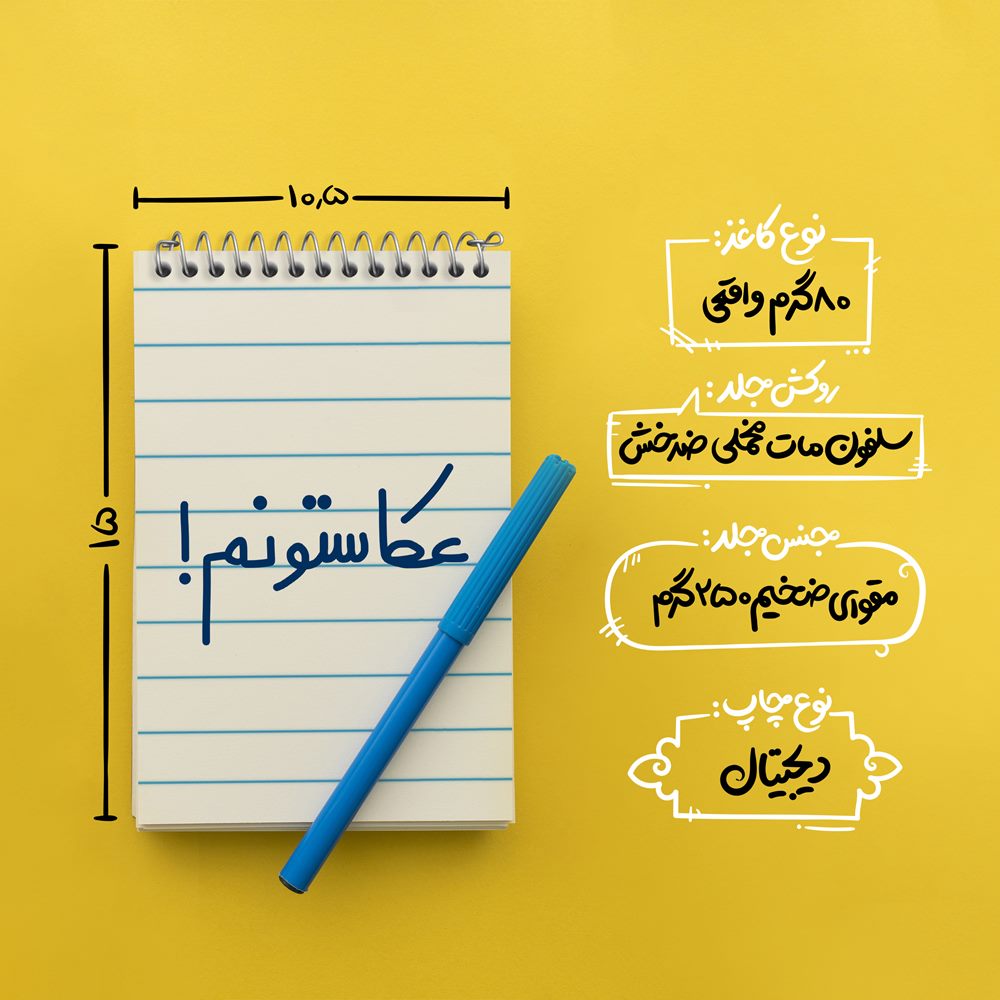 ۱۰,۵
۱۵
عکاستونم!
نوع کاغذ:
۸۰ گرم واقعی
روکش مجلد:
سلفون مات مخملی ضدخش
جنس مجلد:
مقوای ضخیم ۲۵۰ گرم
نوع چاپ:
دیجیتال